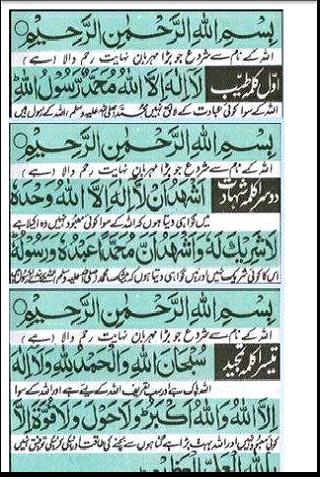 بِسْمِ اللهِ الرَّحْمٰنِ الرَّحِيْمِ
اللہ کے نام سے شروع جو بڑا مہربان نہایت رحم والا (ہے)
اوّل کلمہ طیّب لَا اِلٰهَ اِلَّا اللهُ مُحَمَّدٌ رَّسُوْلُ اللهِ
اللہ کے سوا کوئی عبادت کے لائق نہیں محمد صلی اللہ علیہ وسلم اللہ کے رسول ہیں
بِسْمِ اللهِ الرَّحْمٰنِ الرَّحِيْمِ
اللہ کے نام سے شروع جو بڑا مہربان نہایت رحم والا (ہے)
دوسرا کلمہ شہادت اَشْهَدُ اَنْ لَّا اِلٰهَ اِلَّا اللهُ وَحْدَهٗ
میں گواہی دیتا ہوں کہ اللہ کے سوا کوئی معبود نہیں وہ اکیلا ہے
لَا شَرِيْكَ لَهٗ وَاَشْهَدُ اَنَّ مُحَمَّدًا عَبْدُهٗ وَرَسُوْلُهٗ
اس کا کوئی شریک نہیں اور میں گواہی دیتا ہوں کہ بیشک محمد
بِسْمِ اللهِ الرَّحْمٰنِ الرَّحِيْمِ
اللہ کے نام سے شروع جو بڑا مہربان نہایت رحم والا (ہے)
تیسرا کلمہ تمجید سُبْحَانَ اللهِ وَالْحَمْدُ لِلّٰهِ وَلَا اِلٰهَ
اللہ پاک ہے اور سب تعریف اللہ کے لیے ہے اور اللہ کے سوا
اِلَّا اللهُ وَاللهُ اَكْبَرُ وَلَا حَوْلَ وَلَا قُوَّةَ اِلَّا
کوئی معبود نہیں اور اللہ بہت بڑا ہے گناہوں سے بچنے کی طاقت اور نیکی کرنے کی توفیق نہیں
بِاللهِ الْعَلِيِّ الْعَظِيْمِ